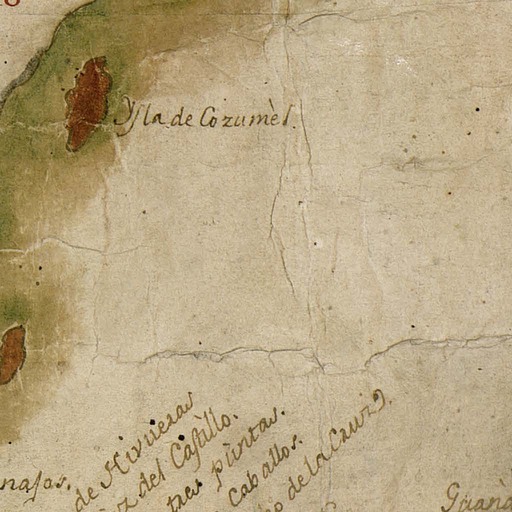 Ysla de Cozumèl.
najas.
de Hivueras
z del Castillo.
tres pùntas.
Caballos.
o de la Cruz
Guana